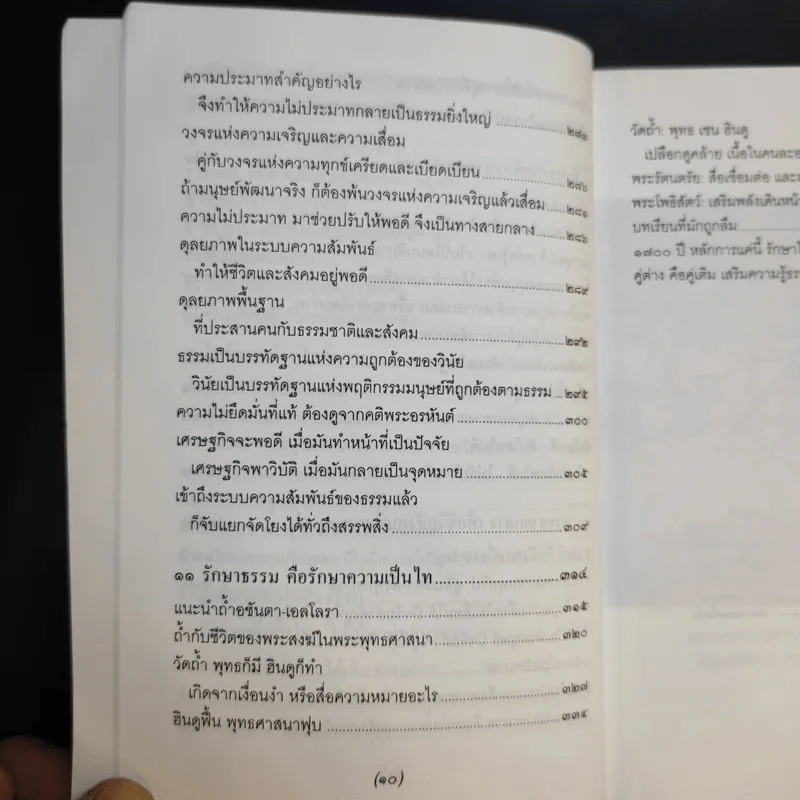 ความประมาทสำคัญอย่างไร
จึงทำให้ความไม่ประมาทกลายเป็นธรรมยิ่งใหญ่ ๒๗๑
วงจรแห่งความเจริญและความเสื่อม
คู่กับวงจรแห่งความทุกข์เครียดและเบียดเบียน ๒๗๖
ถ้ามนุษย์พัฒนาจริง ก็ต้องพ้นวงจรแห่งความเจริญแล้วเสื่อม ๒๘๑
ความไม่ประมาท มาช่วยปรับให้พอดี จึงเป็นทางสายกลาง ๒๘๖
ดุลยภาพในระบบความสัมพันธ์
ทำให้ชีวิตและสังคมอยู่พอดี ๒๘๙
ดุลยภาพพื้นฐาน
ที่ประสานคนกับธรรมชาติและสังคม ๒๙๒
ธรรมเป็นบรรทัดฐานแห่งความถูกต้องของวินัย
วินัยเป็นบรรทัดฐานแห่งพฤติกรรมมนุษย์ที่ถูกต้องตามธรรม ๒๙๕
ความไม่ยึดมั่นที่แท้ ต้องดูจากคติพระอรหันต์ ๓๐๐
เศรษฐกิจจะพอดี เมื่อมันทำหน้าที่เป็นปัจจัย
เศรษฐกิจพาวิบัติ เมื่อมันกลายเป็นจุดหมาย ๓๐๕
เข้าถึงระบบความสัมพันธ์ของธรรมแล้ว
ก็จับแยกจัดโยงได้ทั่วถึงสรรพสิ่ง ๓๐๙
๑๑ รักษาธรรม คือรักษาความเป็นไท ๓๑๔
แนะนำถ้ำอชันตา-เอลโลรา ๓๑๕
ถ้ำกับชีวิตของพระสงฆ์ในพระพุทธศาสนา ๓๒๐
วัดถ้ำ พุทธก็มี ฮินดูก็ทำ
เกิดจากเงื่อนงำ หรือสื่อความหมายอะไร ๓๒๗
ฮินดูฟื้น พุทธศาสนาฟุบ ๓๓๔
(๑๐)
วัดถ้ำ: พุทธ เชน ฮินดู
เปลือกดูคล้าย เนื้อในคนละ
พระรัตนตรัย: สื่อเชื่อมต่อ และ
พระโพธิสัตว์: เสริมพลังเดินหน้า
บทเรียนที่มักถูกลืม
๑๗๐๐ ปี หลักการแค่นี้ รักษา
คู่ต่าง คือคู่เติม เสริมความรู้